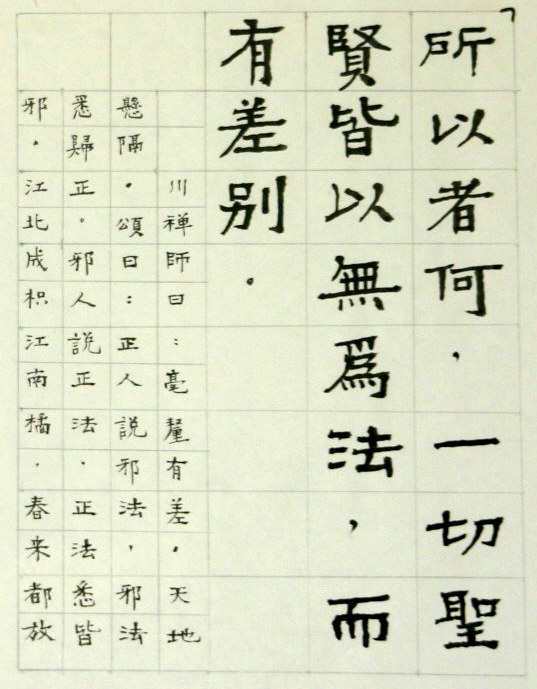 「所以者何，一切聖
賢皆以無爲法，而
有差别。
川禅師曰：毫釐有差，天地
懸隔。頌曰：正人說邪法，邪法
悉歸正。邪人說正法，正法悉皆
邪。江北成枳江南橘，春来都放